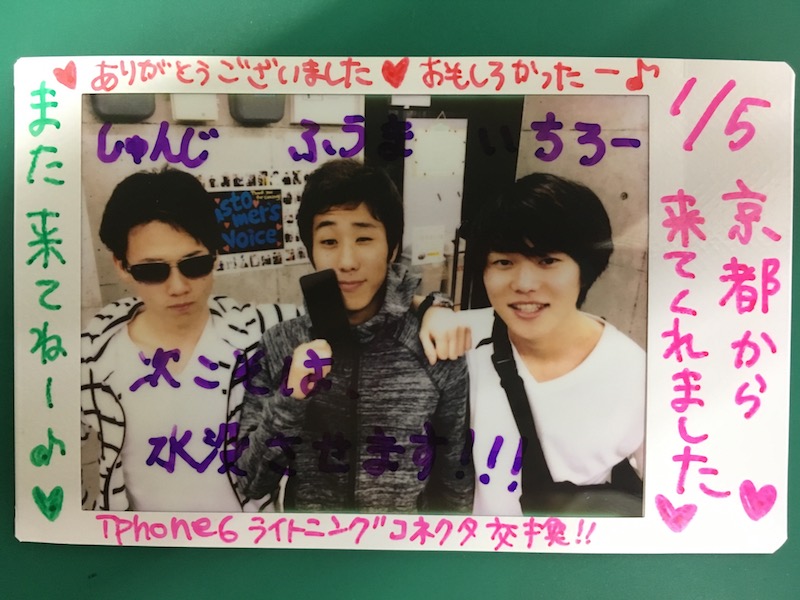 ♥ありがとうございました♥おもしろかったー♪
また来てねー♪♥
1/5 京都から
来てくれました♥♥
しゅんじ ふうま いちろー
stomers
Voice
次こそは、
水没させます!!!
iPhone6 ライトニングコネクタ交換!!